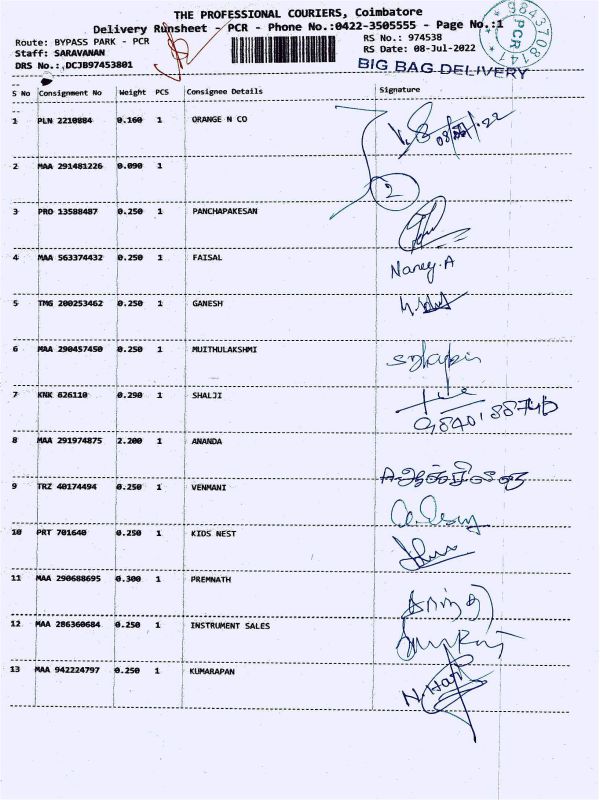 THE PROFESSIONAL COURIERS, Coimbatore
Delivery Runsheet - PCR - Phone No.:0422-3505555 - Page No.:1
Route: BYPASS PARK - PCR
RS No.: 974538
Staff: SARAVANAN
RS Date: 08-Jul-2022
DRS No.: DCJB97453801
BIG BAG DELIVERY
PCR
S No Consignment No Weight PCS Consignee Details Signature
1 PLN 2210884 0.160 1 ORANGE N CO
2 MAA 291481226 0.090 1
2
3 PRO 13588487 0.250 1 PANCHAPAKESAN
4 MAA 563374432 0.250 1 FAISAL
Nancy.A
5 TMG 200253462 0.250 1 GANESH
6 MAA 290457450 0.250 1 MUITHULAKSHMI
7 KNK 626110 0.290 1 SHALJI
8 MAA 291974875 2.200 1 ANANDA
9 TRZ 40174494 0.250 1 VENMANI
10 PRT 701640 0.250 1 KIDS NEST
11 MAA 290688695 0.300 1 PREMNATH
12 MAA 286360684 0.250 1 INSTRUMENT SALES
13 MAA 942224797 0.250 1 KUMARAPAN